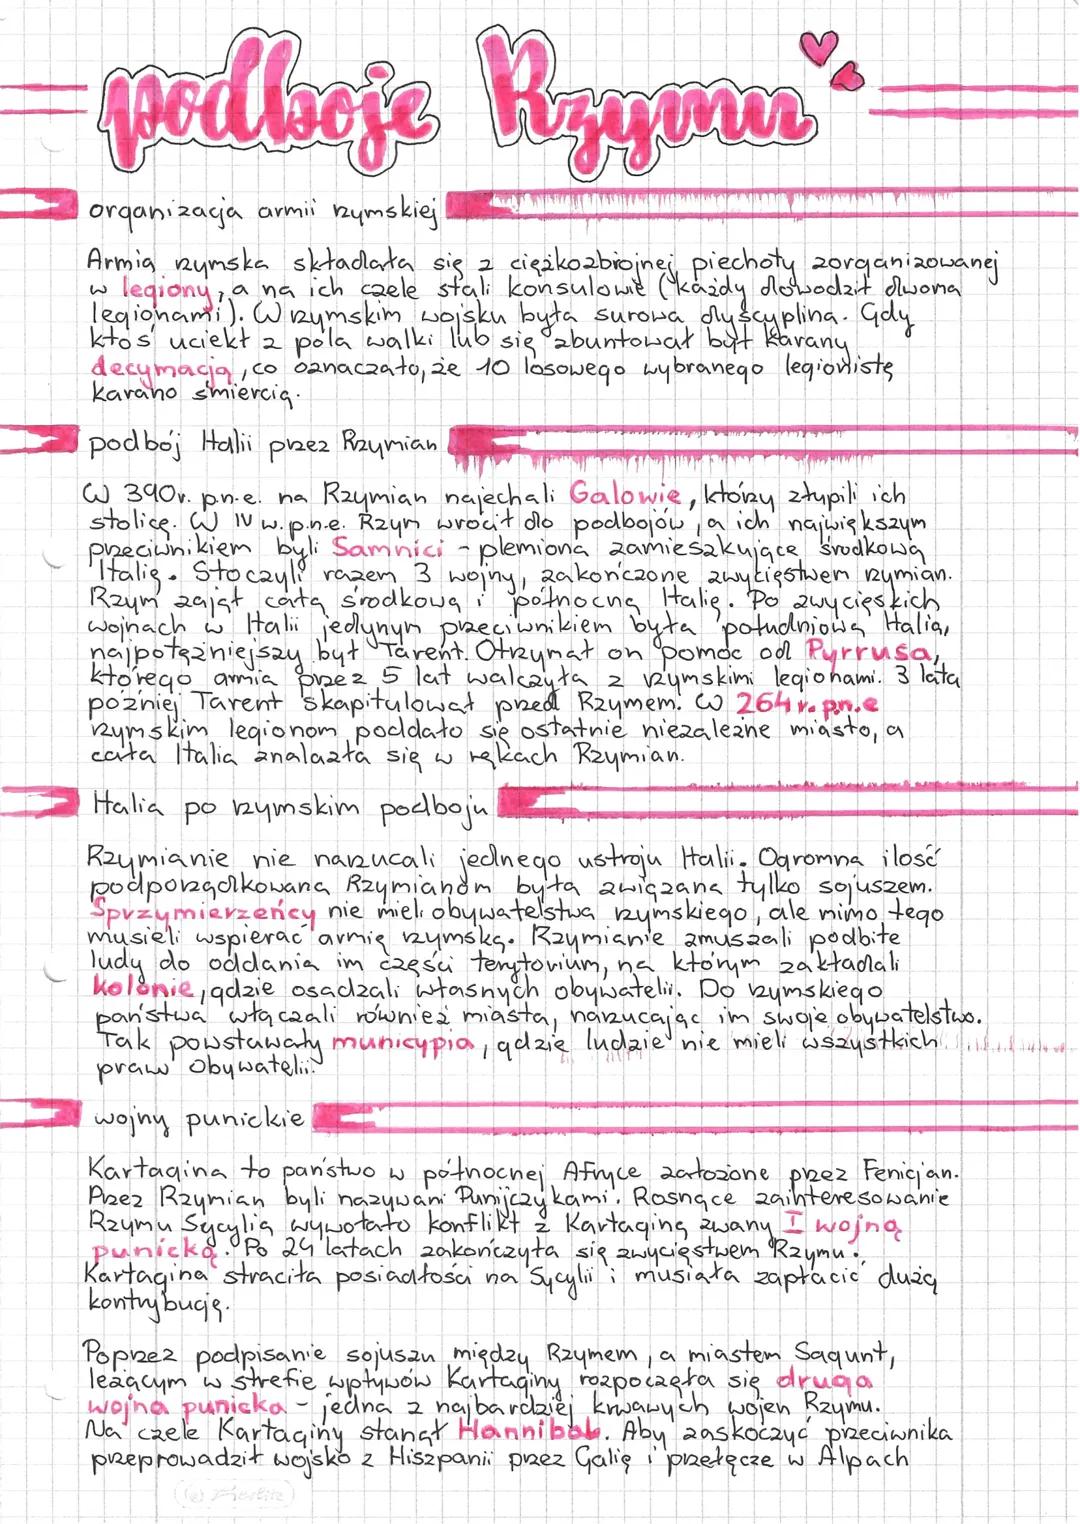 podboje Rzymu
organizacja armii rzymskiej
Armia rzymska składała się z ciężkozbrojnej piechoty zorganizowanej
w legiony, a na ich czele stali konsulowie (każdy dowodził dwoma
legionami). W rzymskim wojsku była surowa dyscyplina. Gdy
ktoś uciekł z pola walki lub się zbuntował był karany
decymacją, co oznaczało, że 10 losowego wybranego legionistę
karano śmiercią.
podbój Italii przez Rzymian
W 390r. p.n.e. na Rzymian najechali Galowie, którzy złupili ich
stolicę. W IV w. p.n.e. Rzym wrócił do podbojów, a ich największym
przeciwnikiem byli Samnici - plemiona zamieszkujące środkową
Italię. Stoczyli razem 3 wojny, zakończone zwycięstwem rzymian.
Rzym zajął całą środkową i północną Italię. Po zwycięskich
wojnach w Italii jedynym przeciwnikiem była południowa Italia,
najpotężniejszy był Tarent. Otrzymał on pomoc od Pyrrusa,
którego armia przez 5 lat walczyła z rzymskimi legionami. 3 lata
później Tarent skapitulował przed Rzymem. W 264 r. p.n.e
rzymskim legionom poddało się ostatnie niezależne miasto, a
cała Italia znalazła się w rękach Rzymian.
Italia po rzymskim podboju
Rzymianie nie narzucali jednego ustroju Italii. Ogromna ilość
podporządkowana Rzymianom była związana tylko sojuszem.
Sprzymierzeńcy nie mieli obywatelstwa rzymskiego, ale mimo tego
musieli wspierać armię rzymską. Rzymianie zmuszali podbite
ludy do oddania im części terytorium, na którym zakładali
kolonie, gdzie osadzali własnych obywatelii. Do rzymskiego
państwa włączali również miasta, narzucając im swoje obywatelstwo.
Tak powstawały municypia, gdzie ludzie nie mieli wszystkich
praw obywatelii.
wojny punickie
Kartagina to państwo w północnej Afryce założone przez Fenicjan.
Przez Rzymian byli nazywani Punijczykami. Rosnące zainteresowanie
Rzymu Sycylią wywołało konflikt z Kartaginą zwany I wojną
punicką. Po 24 latach zakończyła się zwycięstwem Rzymu.
Kartagina straciła posiadłości na Sycylii i musiała zapłacić dużą
kontrybucję.
Poprzez podpisanie sojuszu między Rzymem, a miastem Sagunt,
leżącym w strefie wpływów Kartaginy rozpoczęła się druga
wojna punicka - jedna z najbardziej krwawych wojen Rzymu.
Na czele Kartaginy stanął Hannibal. Aby zaskoczyć przeciwnika
przeprowadził wojsko z Hiszpanii przez Galię i przełęcze w Alpach